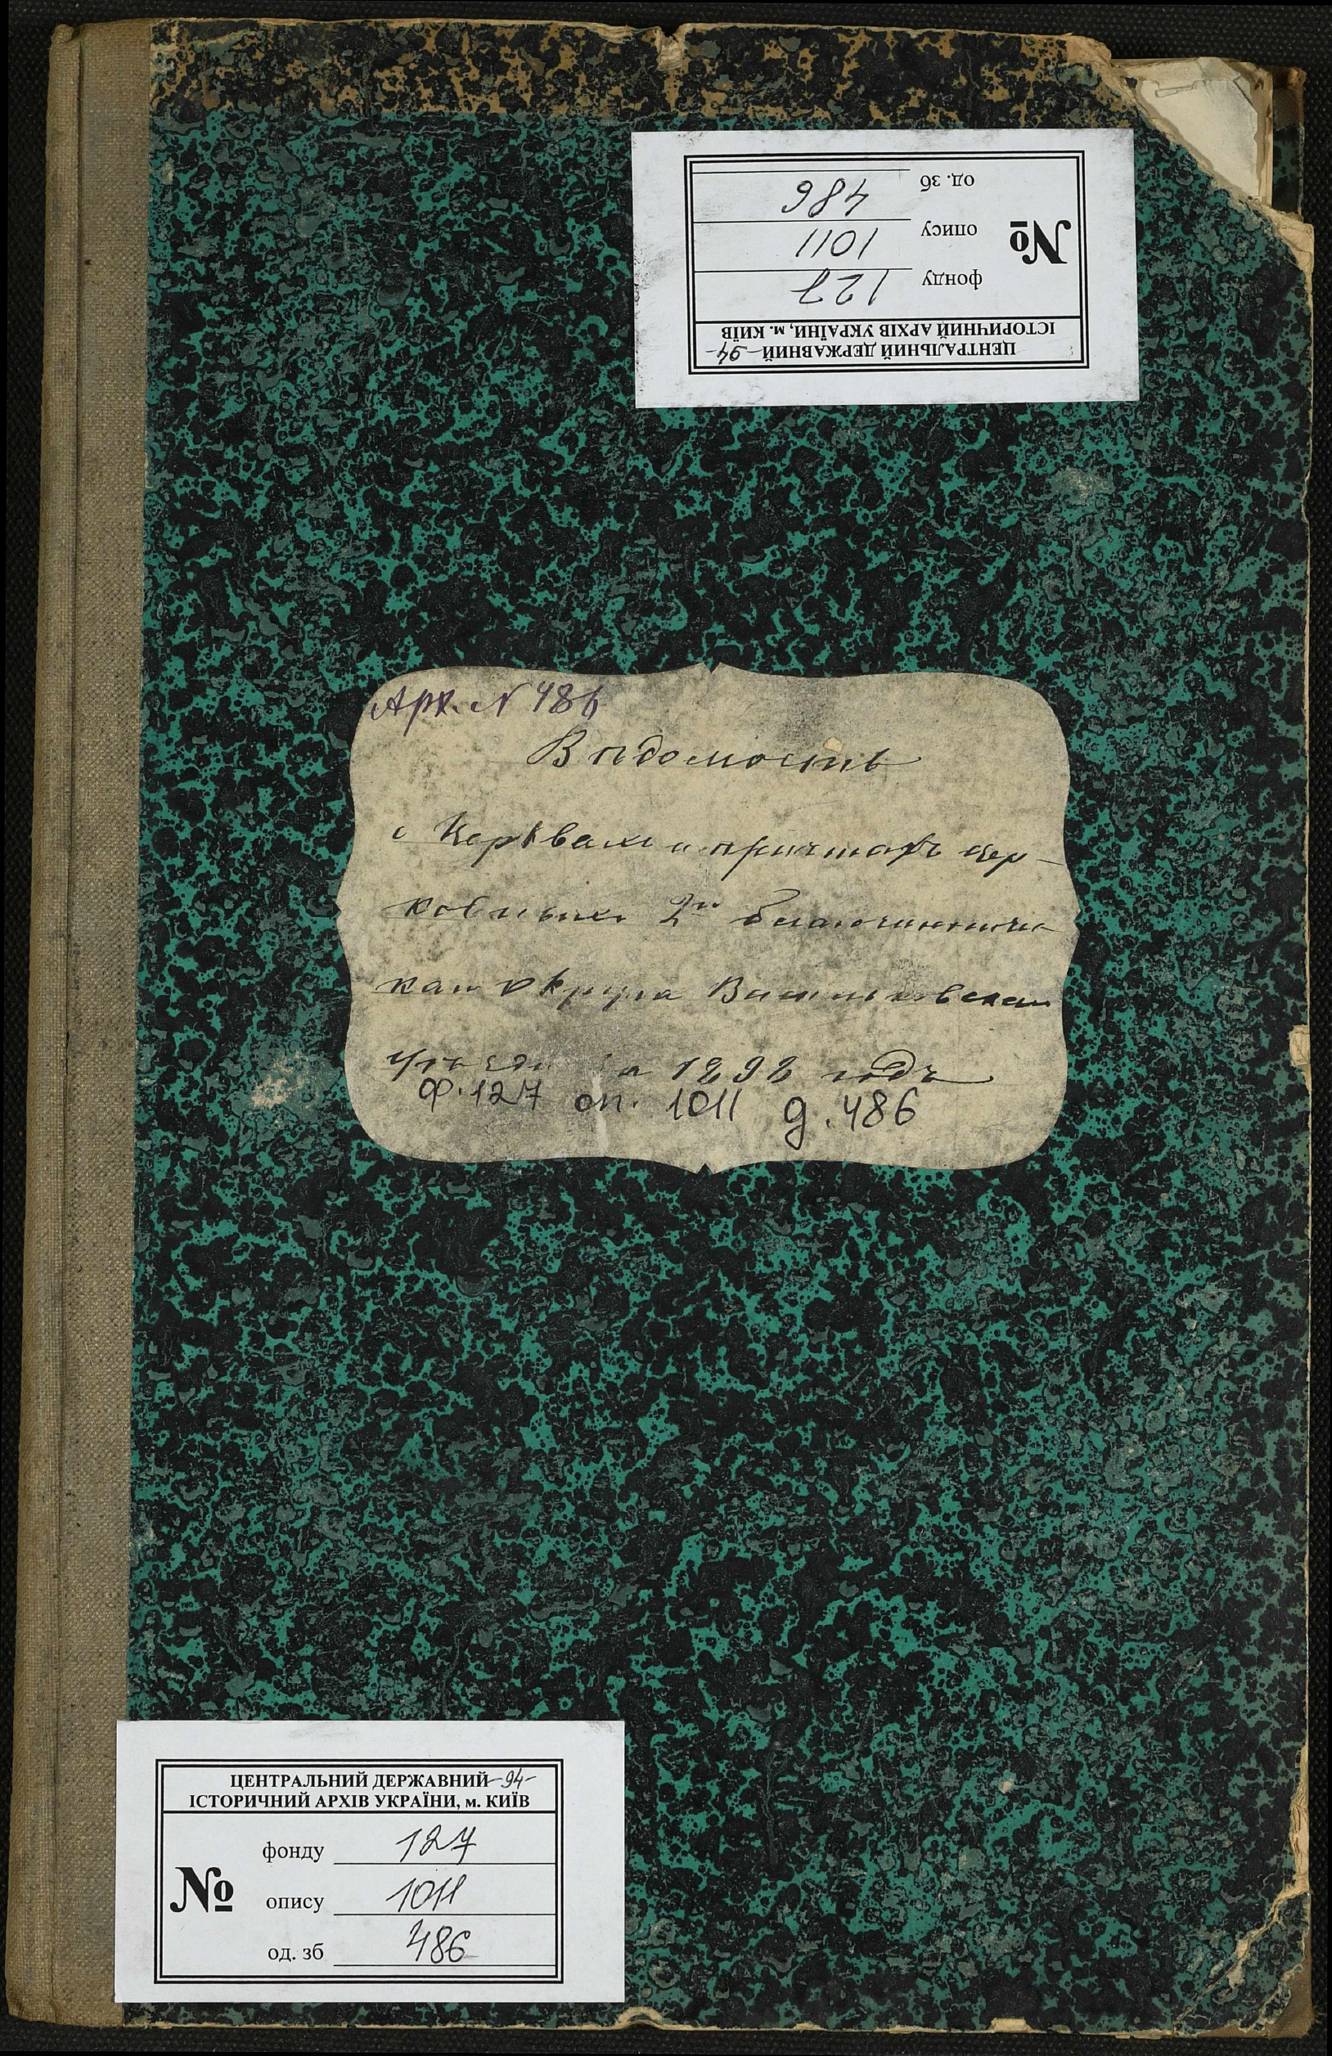 ЦЕНТРАЛЬНИЙ ДЕРЖАВНИЙ -94-
ІСТОРИЧНИЙ АРХІВ УКРАЇНИ, м. КИЇВ
№
фонду 127
опису 1011
од. зб 486
Арх. N 486
Вѣдомость
о Церквахъ и причтахъ цер-
ковныхъ 2го благочинниче-
скаго Округа Васильковскаго
уѣзда за 1892 годъ
Ф. 127 оп. 1011 д. 486
ЦЕНТРАЛЬНИЙ ДЕРЖАВНИЙ -94-
ІСТОРИЧНИЙ АРХІВ УКРАЇНИ, м. КИЇВ
№
фонду 127
опису 1011
од. зб 486